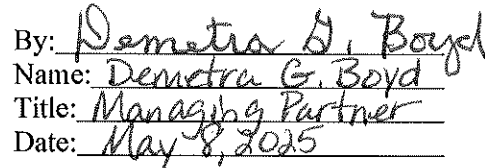 By: Demetra G. Boyd
Name: Demetra G. Boyd
Title: Managing Partner
Date: May 8, 2025